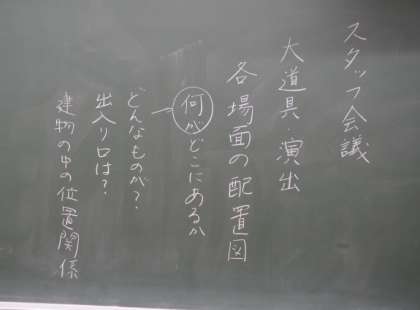 スタッフ会議
大道具・演出
各場面の配置図
何がどこにあるか
どんなものが?
出入り口は?
建物の中の位置関係